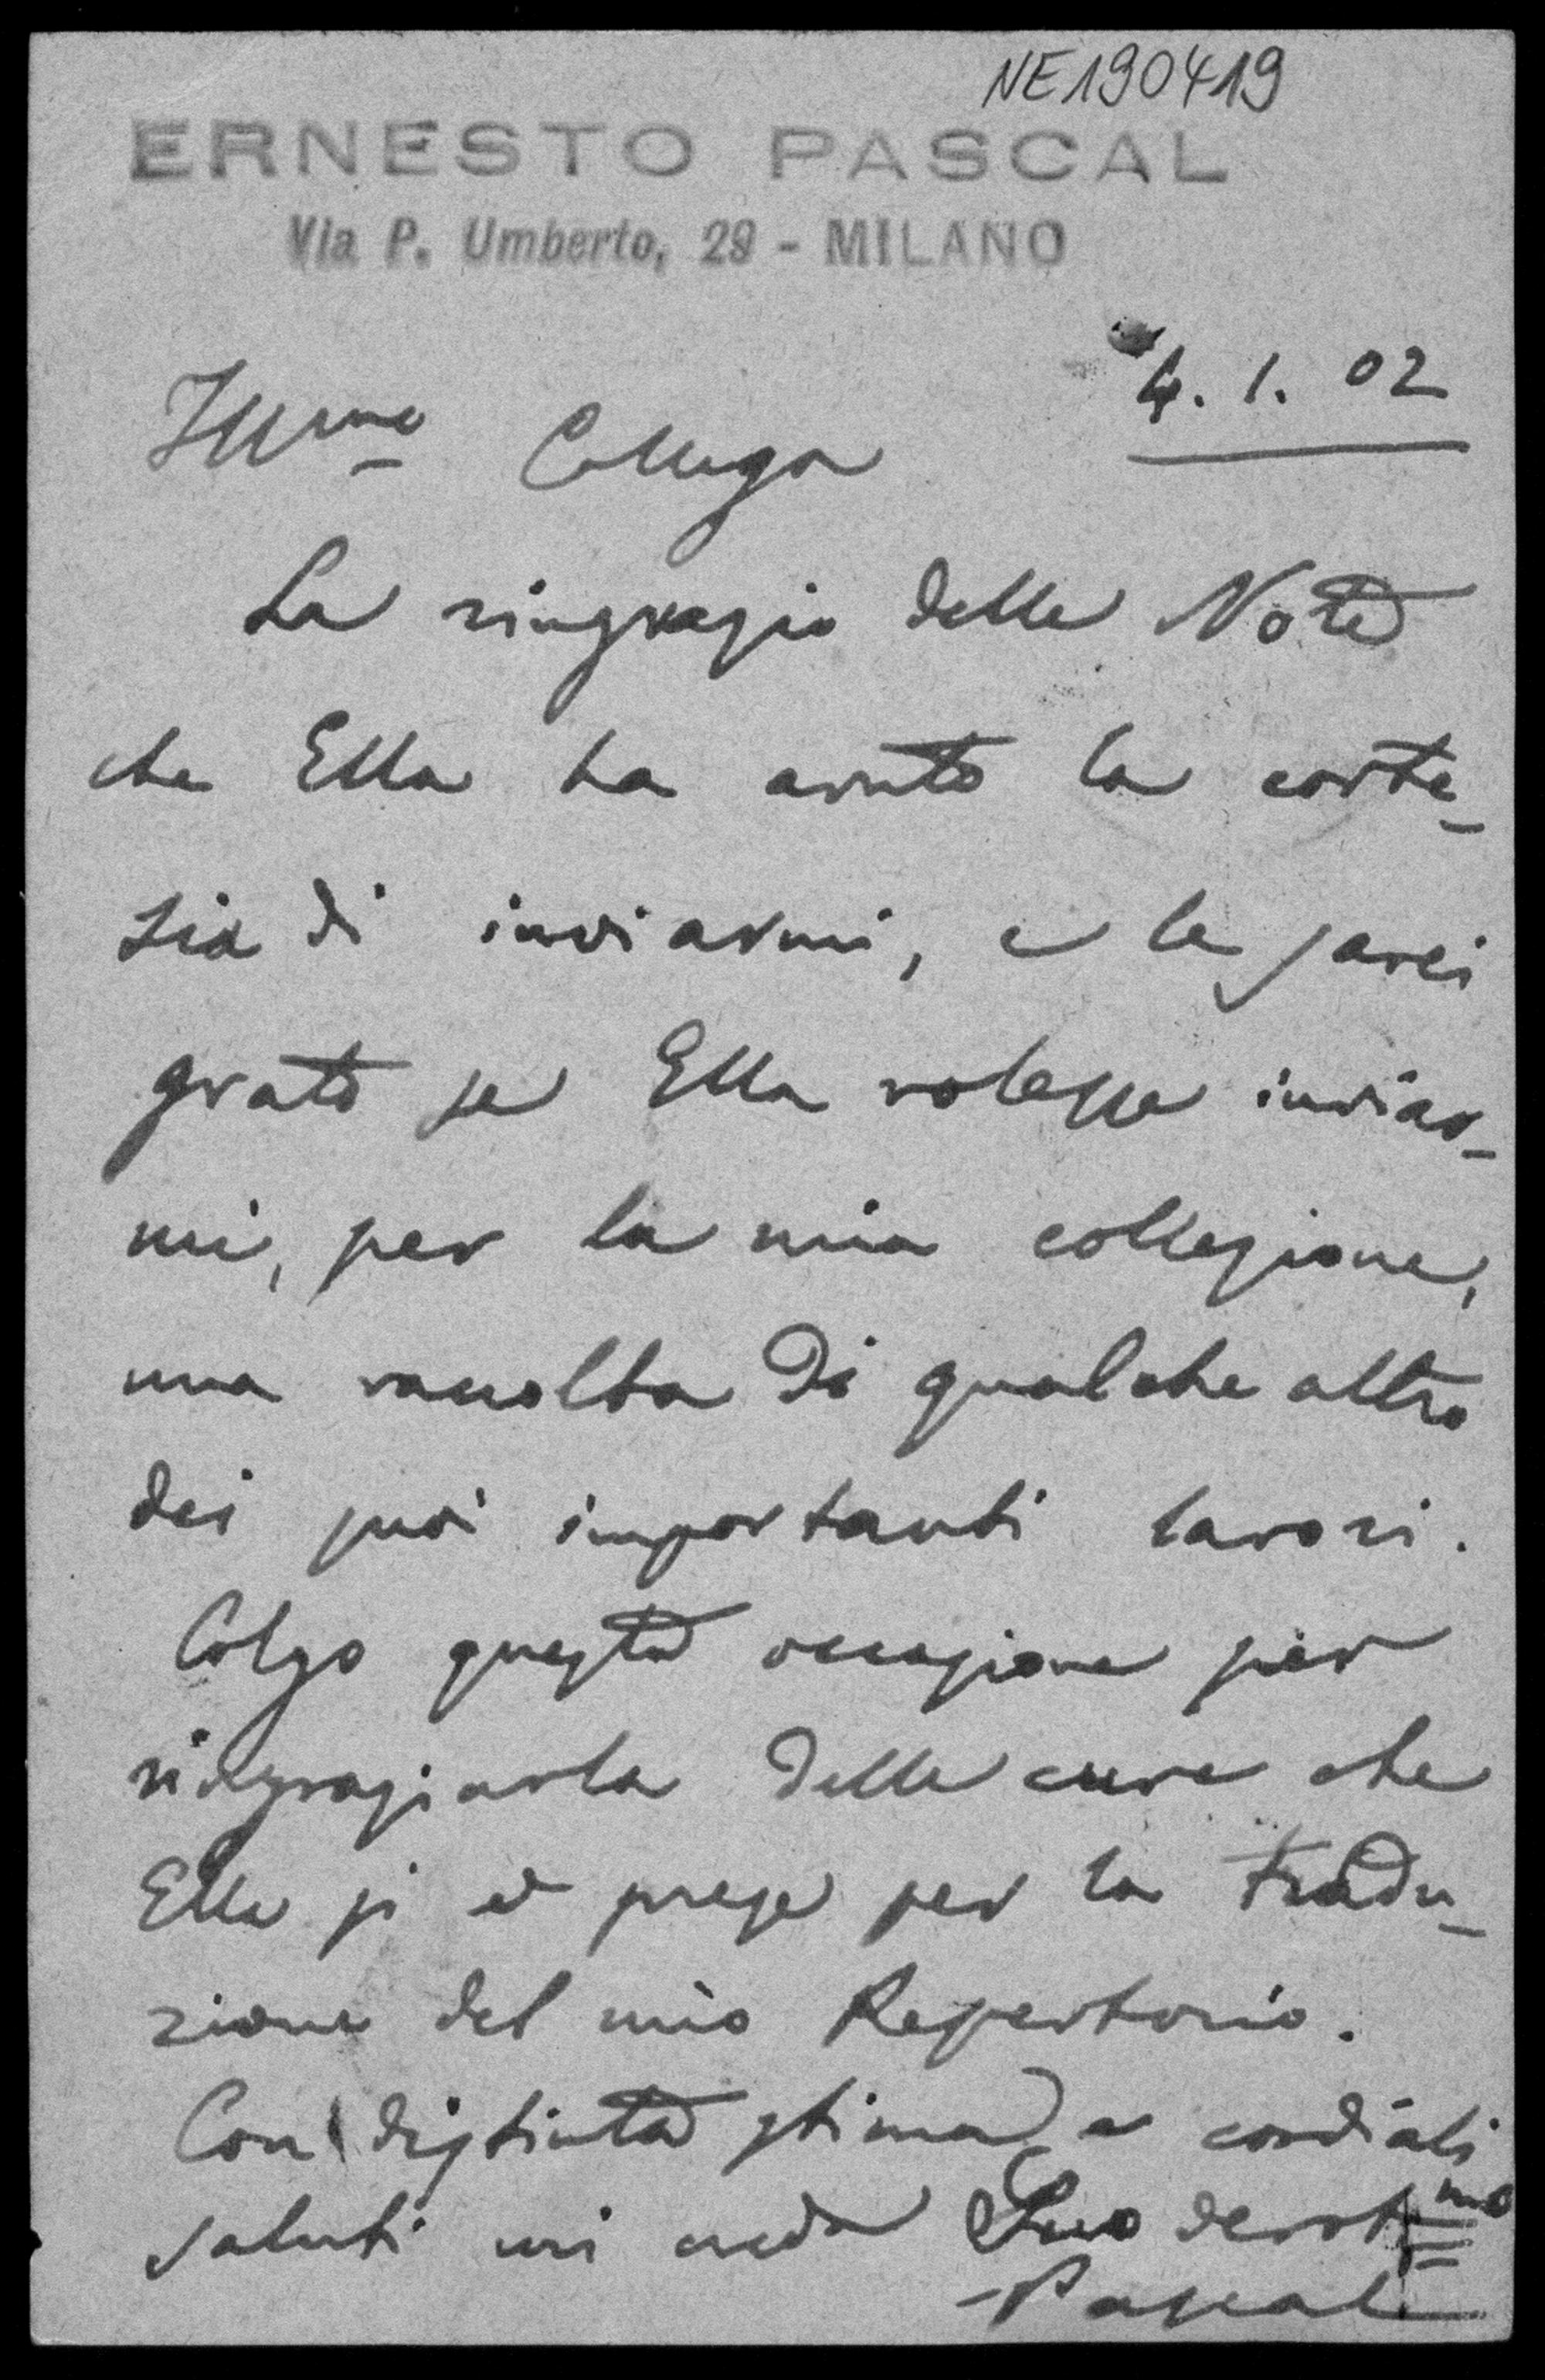 NE190419
ERNESTO PASCAL
Via P. Umberto, 29 - MILANO
4. 1. 02
Illmo Collega
La ringrazio delle Note
che Ella ha avuto la corte-
sia di inviarmi, e le sarei
grato se Ella volesse inviar-
mi, per la mia collezione,
una raccolta di qualche altro
dei suoi importanti lavori.
Colgo questa occasione per
ringraziarla delle cure che
Ella si è prese per la tradu-
zione del mio Repertorio.
Con distinta stima e cordiali
saluti mi creda Suo devotmo
Pascal